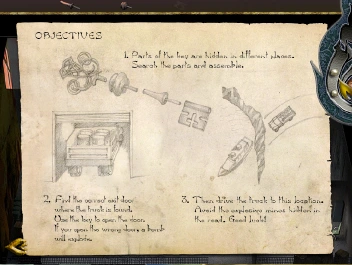 OBJECTIVES
1. Parts of the key are hidden in different places.
Search the parts and assemble.
2. Find the correct exit door
where the truck is found.
Use the key to open the door.
If you open the wrong door a bomb
will explode.
3. Then drive the truck to this location.
Avoid the explosive mines hidden in
the road. Good luck!